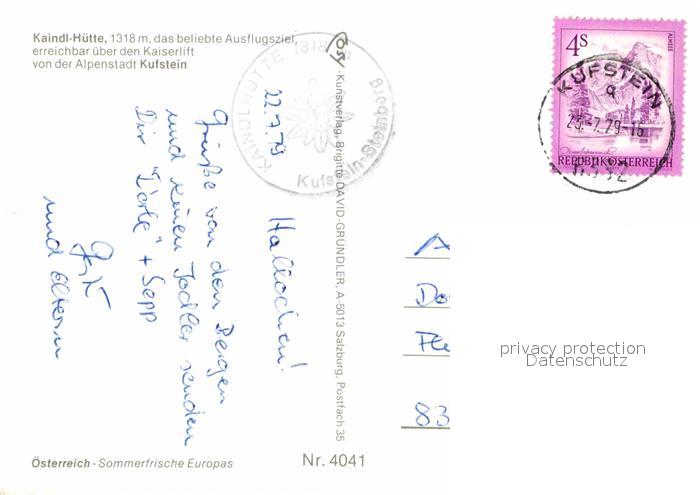 Kaindl-Hütte, 1318 m, das beliebte Ausflugsziel,
erreichbar über den Kaiserlift
von der Alpenstadt Kufstein
KAINDLHÜTTE 1318 m
Kufstein-Steinberg
22.7.79
Hallöchen!
Grüße von den Bergen
und einen Jodler senden
Dir + Sepp
und Eltern
Kunstverlag, Brigitte DAVID-GRÜNDLER, A-5013 Salzburg, Postfach 35
4S
ALMSEE
Oberösterreich
REPUBLIK ÖSTERREICH
KUFSTEIN
a
25.-7.79-16
6332
A
Do
83
privacy protection
Datenschutz
Österreich - Sommerfrische Europas
Nr. 4041